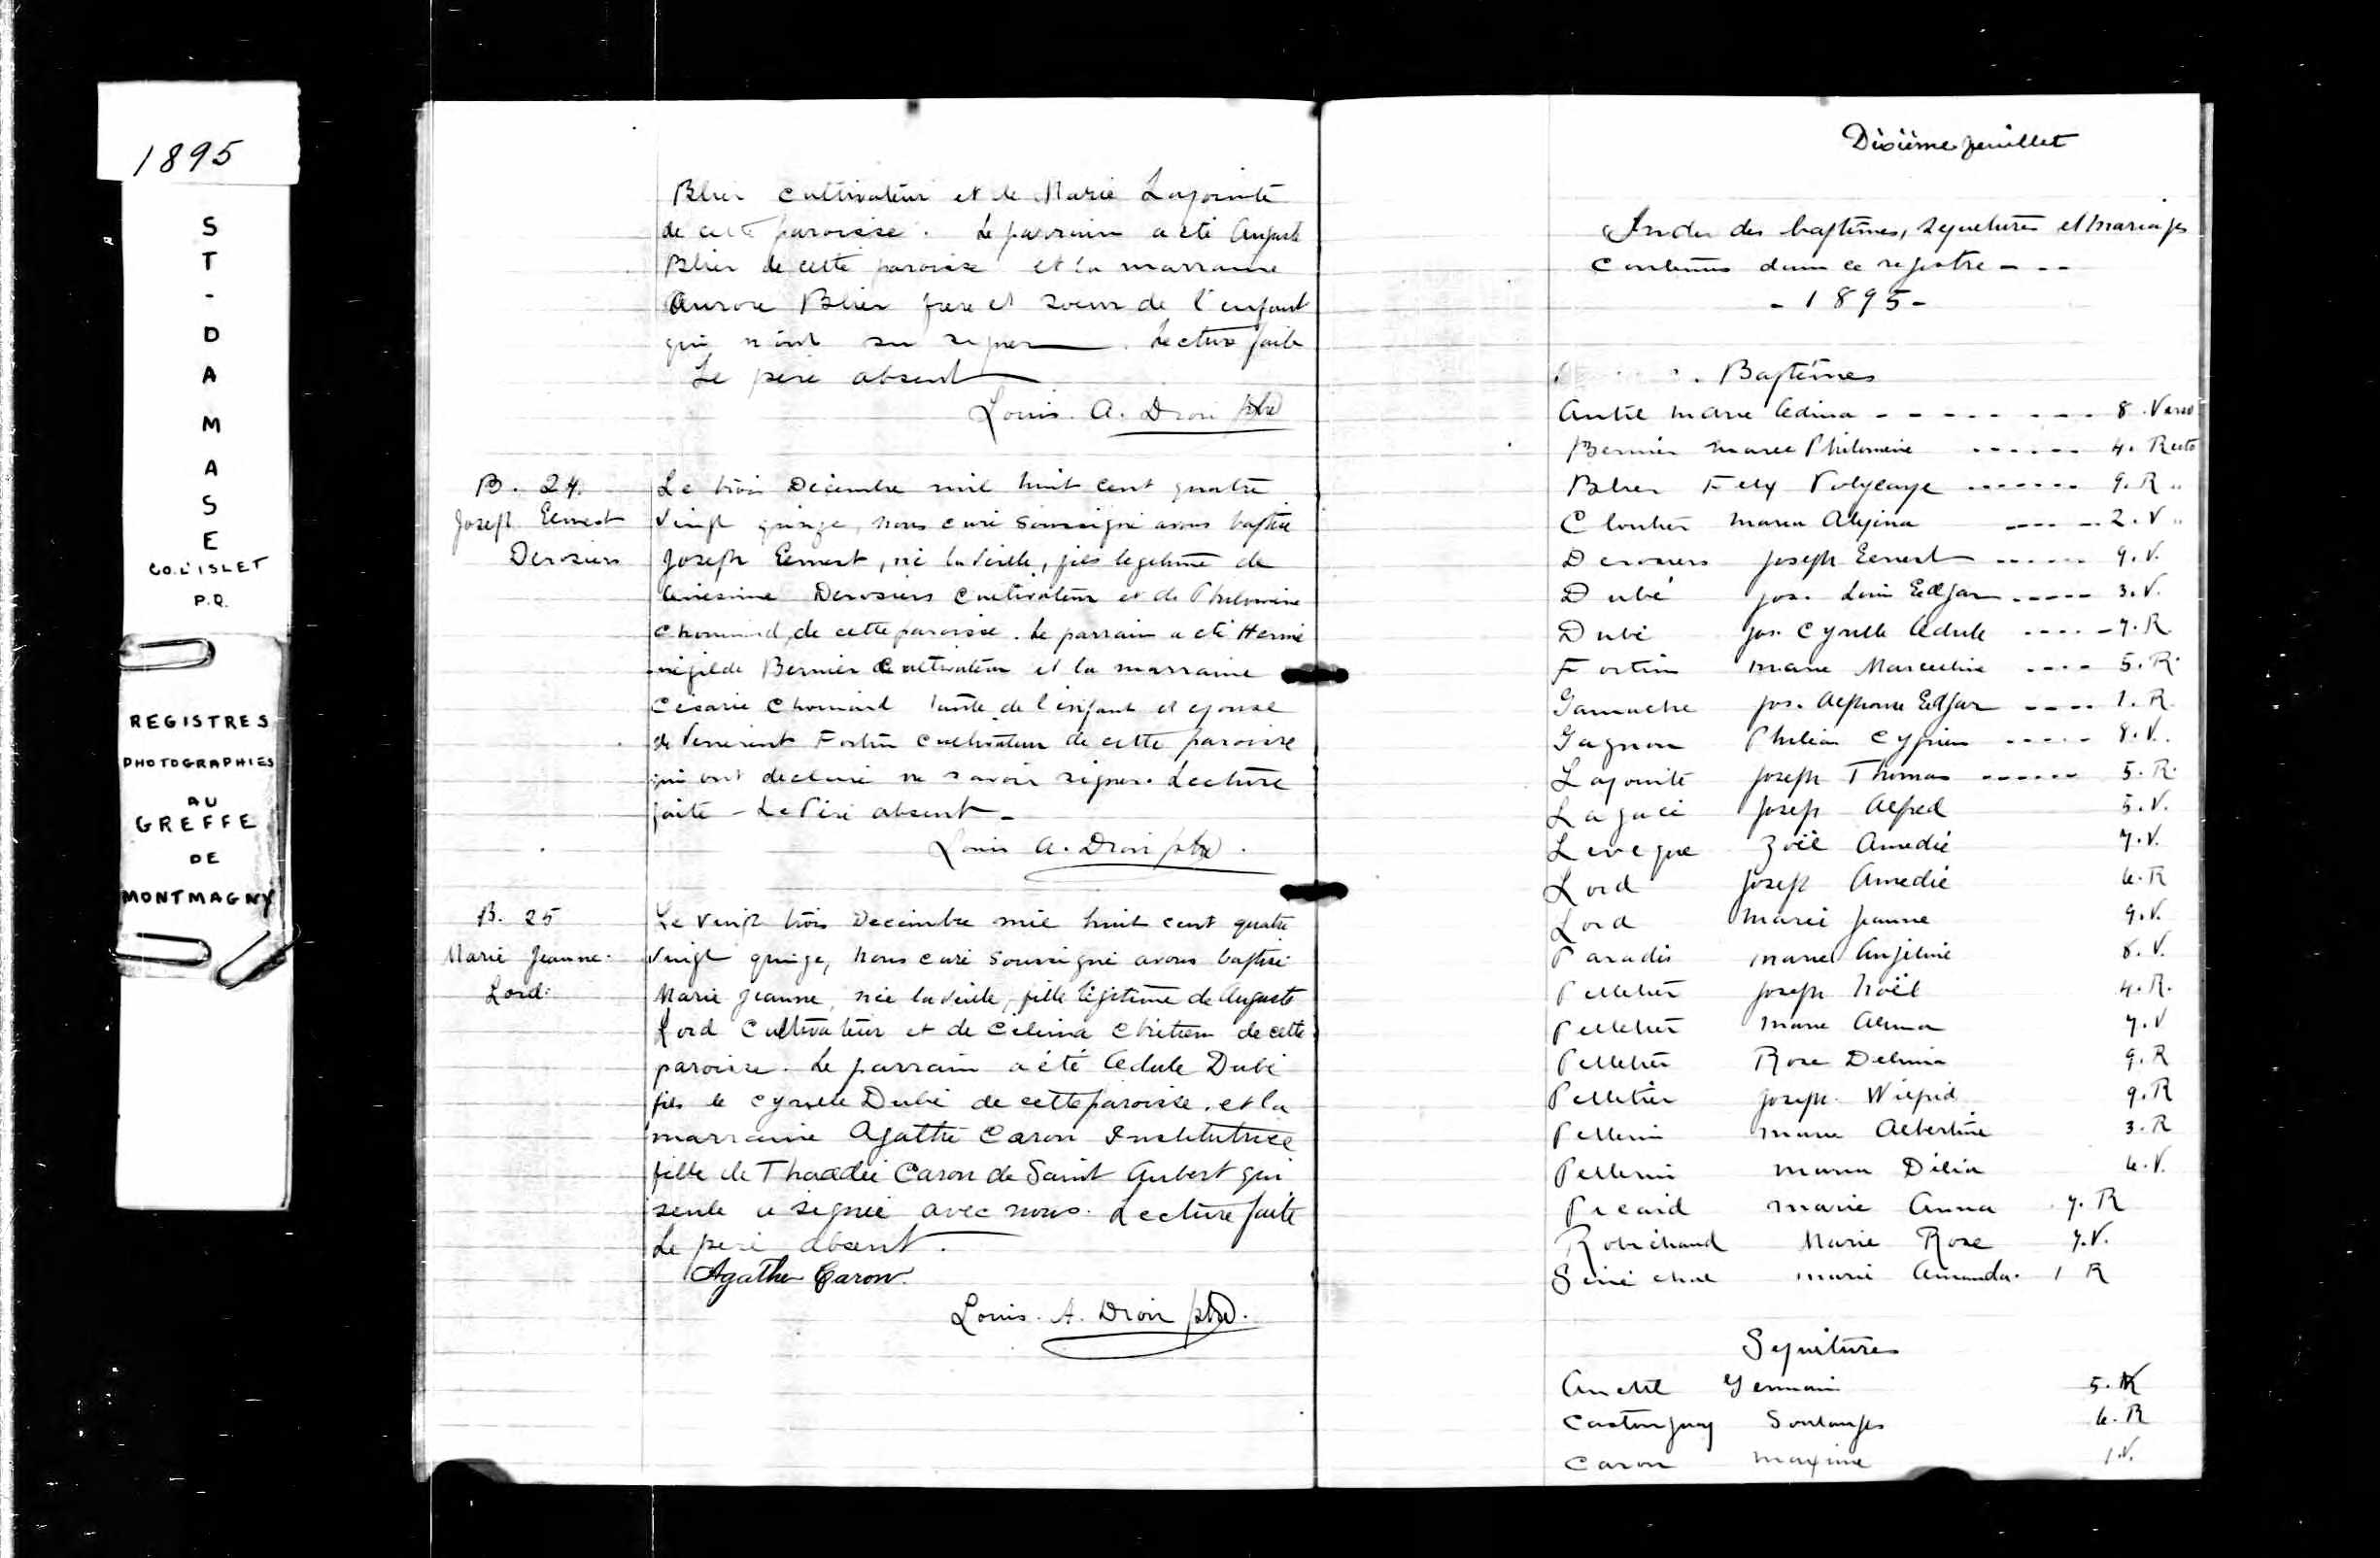 1895
ST-DAMASE
CO. L'ISLET
P.Q.
REGISTRES
PHOTOGRAPHIES
AU
GREFFE
DE
MONTMAGNY
Blier cultivateur et de Marie Lapointe
de cette paroisse. Le parrain a été Auguste
Blier de cette paroisse et la marraine
Aurore Blier frere et soeur de l'enfant
qui n'ont su signer. Lecture faite
Le père absent
Louis. A. Dion ptre
B. 24.
Joseph Ernest
Derosiers
Le trois Décembre mil huit cent quatre
vingt quinze, nous curé soussigné avons baptisé
Joseph Ernest, né la veille, fils legitime de
Derosiers cultivateur et de Philomène
Chouinard de cette paroisse. Le parrain a été Hermé
négilde Bernier cultivateur et la marraine
Césarie Chouinard tante de l'enfant et epouse
de Fortin cultivateur de cette paroisse
qui ont declaré ne savoir signer. Lecture
faite - Le Père absent -
Louis A. Dion ptre.
B. 25
Marie Jeanne.
Lord.
Le vingt trois Decembre mil huit cent quatre
vingt quinze, nous curé soussigné avons baptisé
Marie Jeanne, née la veille, fille légitime de Auguste
Lord cultivateur et de Célina Chrétien de cette
paroisse. Le parrain a été Adule Dubé
fils de Cyrille Dubé de cette paroisse. et la
marraine Agathe Caron Institutrice
fille de Thaddée Caron de Saint Aubert qui
seule a signée avec nous. Lecture faite
Le père absent.
Agathe Caron.
Louis. A. Dion ptre.
Dixième feuillet
Index des baptêmes, sepultures et mariages
Contenus dans ce registre - - -
- 1895 -
Baptêmes
Marie - - - - - - - - 8. Verso
Bernier Marie Philomène - - - - - - 4. Recto
Blier Felix Polycarpe - - - - - - 9. R "
Cloutier Maria - - - - - 2. V "
Derosiers Joseph Ernest - - - - - - 9. V.
Dubé Jos. Louis Edgar - - - - - 3. V.
Dubé Jos. Cyrille Adule - - - - - 7. R.
Fortin Marie Marceline - - - - 5. R.
Gamache Jos. Alphonse Edgar - - - - 1. R.
Gagnon Philias Cyprien - - - - - 8. V.
Lapointe Joseph Thomas - - - - - - 5. R.
Lagacé Joseph Alfred 5. V.
Leveque Zoël Amedée 7. V.
Lord Joseph Amedée 6. R
Lord Marie Jeanne 9. V.
Paradis Marie Angeline 8. V.
Pelletier Joseph Noël 4. R.
Pelletier Marie Alma 7. V
Pelletier Rose Delima 9. R
Pelletier Joseph. Wilfrid 9. R
Pellerin Marie Albertine 3. R
Pellerin Maria Délia 6. V.
Picard Marie Anna 7. R
Robichaud Marie Rose 7. V.
Sénéchal Marie Amanda. 1 R
Sepultures
Anctil Germain 5.
Castonguay Soulanges 6. R
Caron Maxime 1 V.